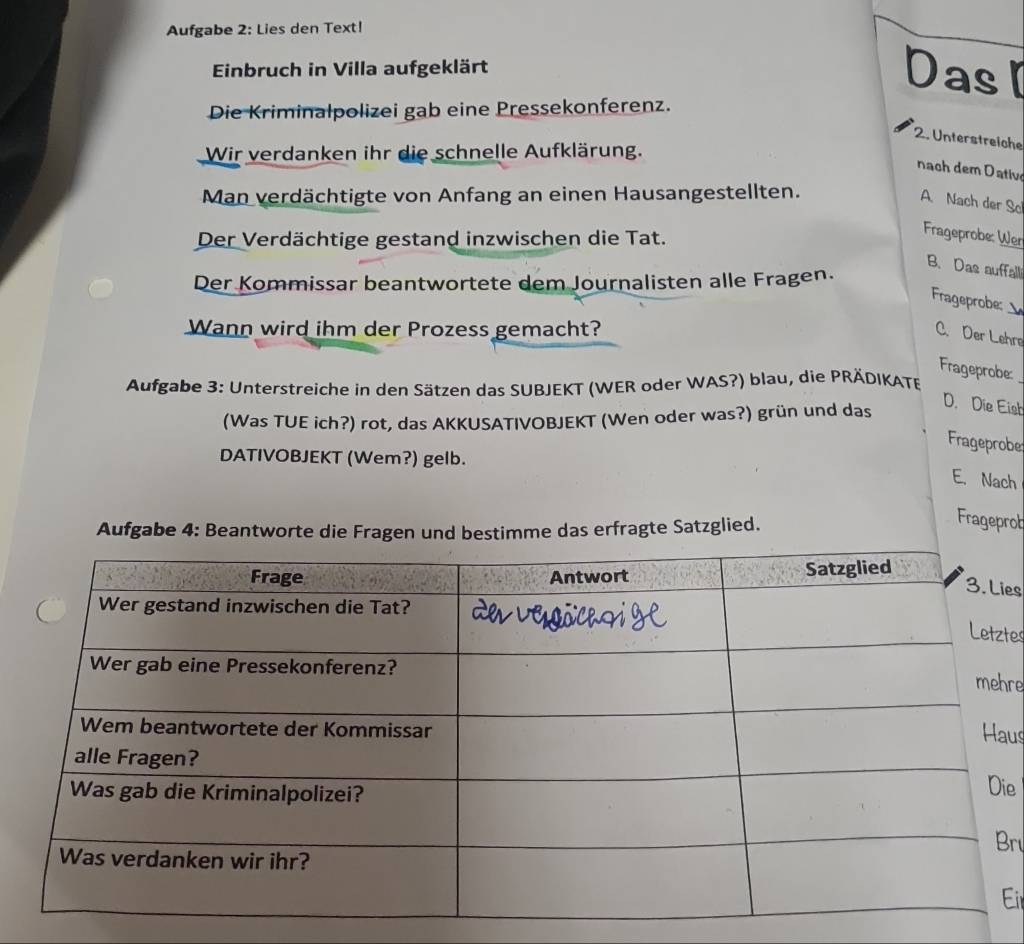 Aufgabe 2: Lies den Text!
Einbruch in Villa aufgeklärt
Die Kriminalpolizei gab eine Pressekonferenz.
Wir verdanken ihr die schnelle Aufklärung.
Man verdächtigte von Anfang an einen Hausangestellten.
Der Verdächtige gestand inzwischen die Tat.
Der Kommissar beantwortete dem Journalisten alle Fragen.
Wann wird ihm der Prozess gemacht?
Aufgabe 3: Unterstreiche in den Sätzen das SUBJEKT (WER oder WAS?) blau, die PRÄDIKATE
(Was TUE ich?) rot, das AKKUSATIVOBJEKT (Wen oder was?) grün und das
DATIVOBJEKT (Wem?) gelb.
Aufgabe 4: Beantworte die Fragen und bestimme das erfragte Satzglied.
Frage Antwort Satzglied
Wer gestand inzwischen die Tat?
Wer gab eine Pressekonferenz?
Wem beantwortete der Kommissar
alle Fragen?
Was gab die Kriminalpolizei?
Was verdanken wir ihr?
Das
2. Unterstreiche
nach dem Dativ
A. Nach der
Frageprobe: Wer
B. Das
Frageprobe:
C. Der Lehre
Frageprobe:
D. Die
Frageprobe:
E. Nach
3. Lies
Letztes
mehre
Haus
Die